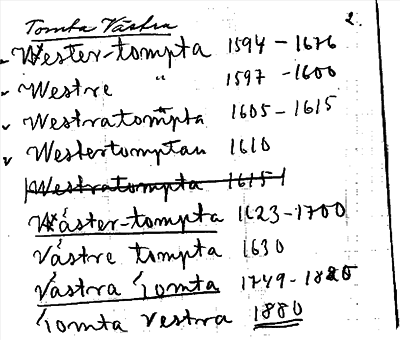 Tomta Västra 2.
Wester-tompta 1594-1676
Westre " 1597-1600
Westratompta 1605-1615
Westertomptan 1610
Westratompta 1615
Wäster-tompta 1623-1700
Västre tompta 1630
Västra Tomta 1749-1880
Tomta Vestra 1880